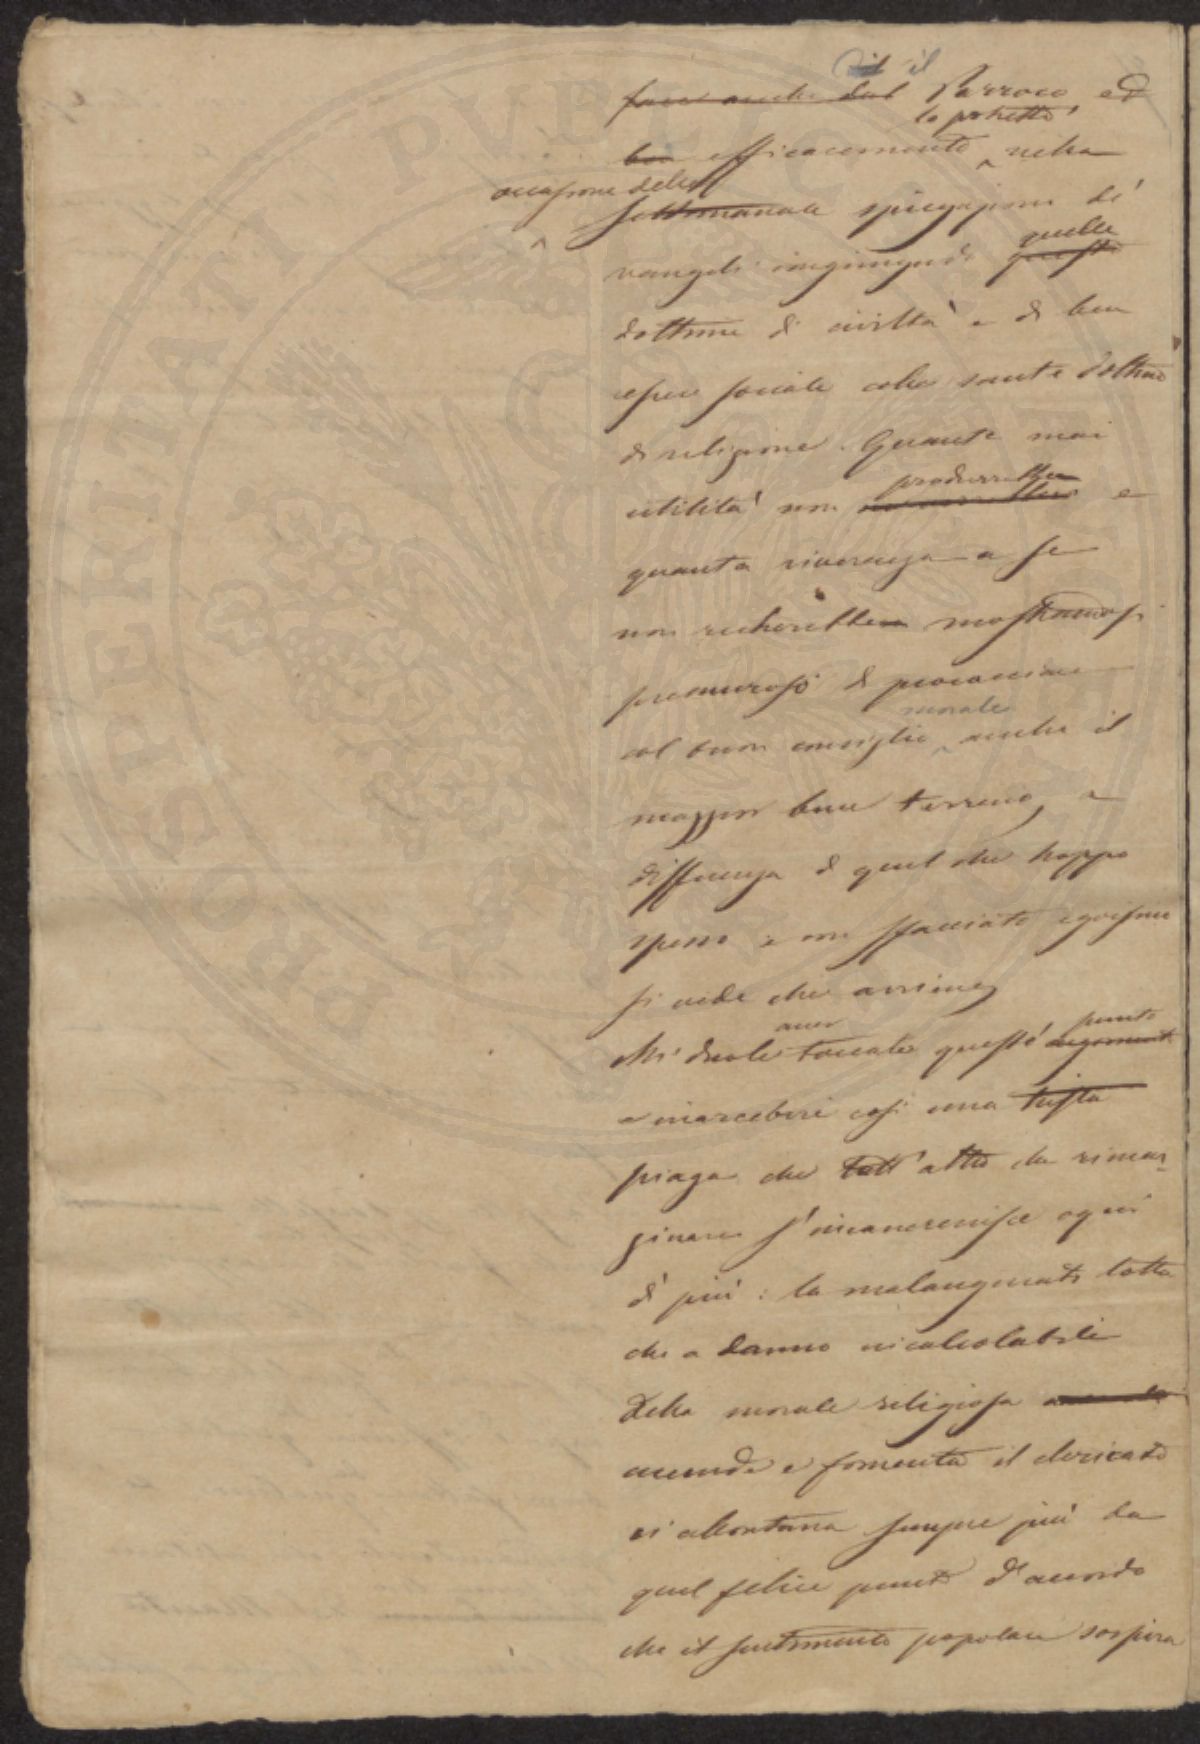 il il
fare anche dal Parroco ed
lo potrebbe
ben efficacemente nella
occasione delle
settimanale spiegazioni de'
vangeli congiungendo quelle
queste
dottrine di civiltà e di ben
essere sociale colle sante dottrine
di religione. Quante mai
produrrebbe
utilità non e
quanta riverenza a se
non recherebbe mostrandosi
premuroso di procacciare
morale
col buon consiglio anche il
maggior bene terreno, e
differenza di quel che troppo
spesso e con sfacciato egoismo
si vede che avviene
aver punto
Mi duole toccato questo argomento
e inacerbire così una trista
piaga che tutt'altro da rimar-
ginare s'incancrenisce ogni
dì più: la malaugurata lotta
che a danno incalcolabile
della morale religiosa
accende e fomenta il clericato
ci allontana sempre più da
quel felice punto d'accordo
che il sentimento popolare sospira
PROSPERITATI PVBLICAE